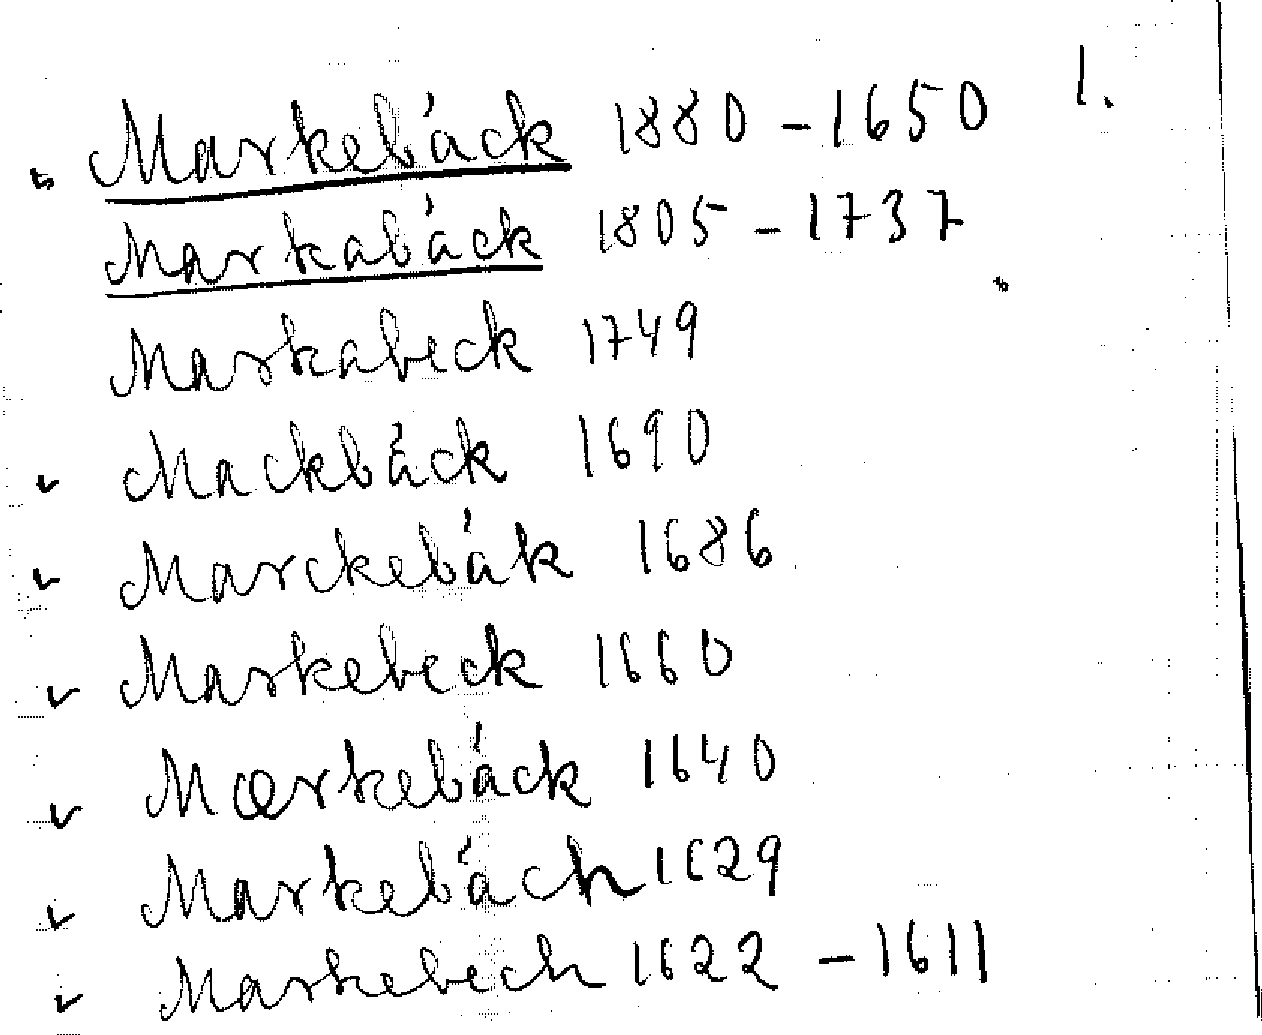 1.
Markebáck 1880 - 1650
Markabáck 1805 - 1737
Markabeck 1749
Mackbáck 1690
Marckebák 1686
Markebeck 1660
Mærkebáck 1640
Markebách 1629
Markebech 1622 - 1611